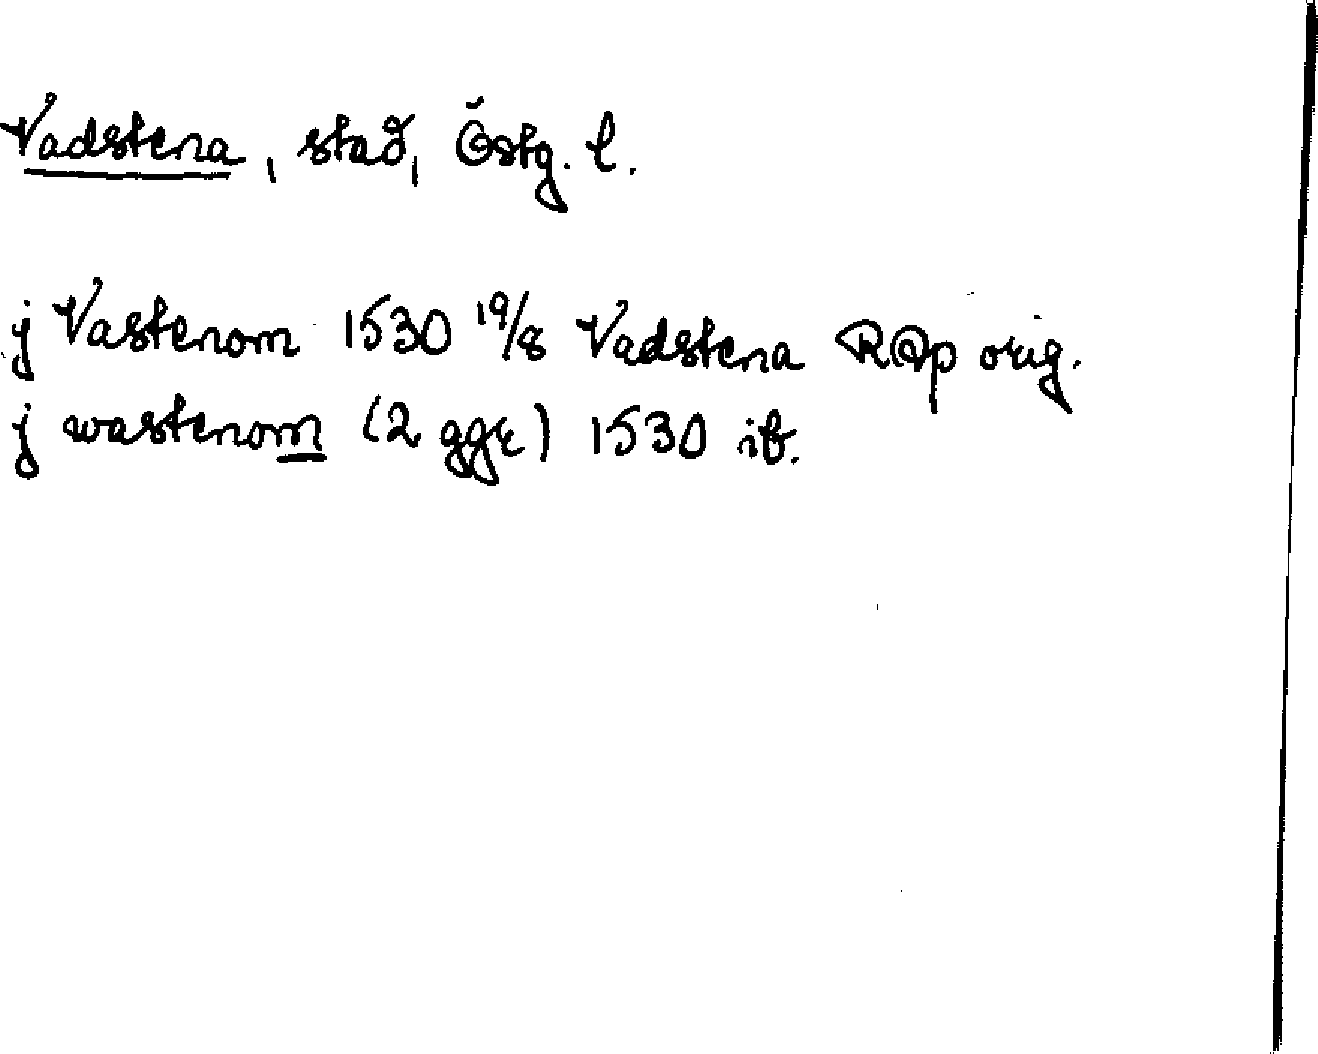 Vadstena, stad, Östg. l.
j Vastenom 1530 19/8 Vadstena RAp orig.
j wastenom (2 ggr) 1530 ib.